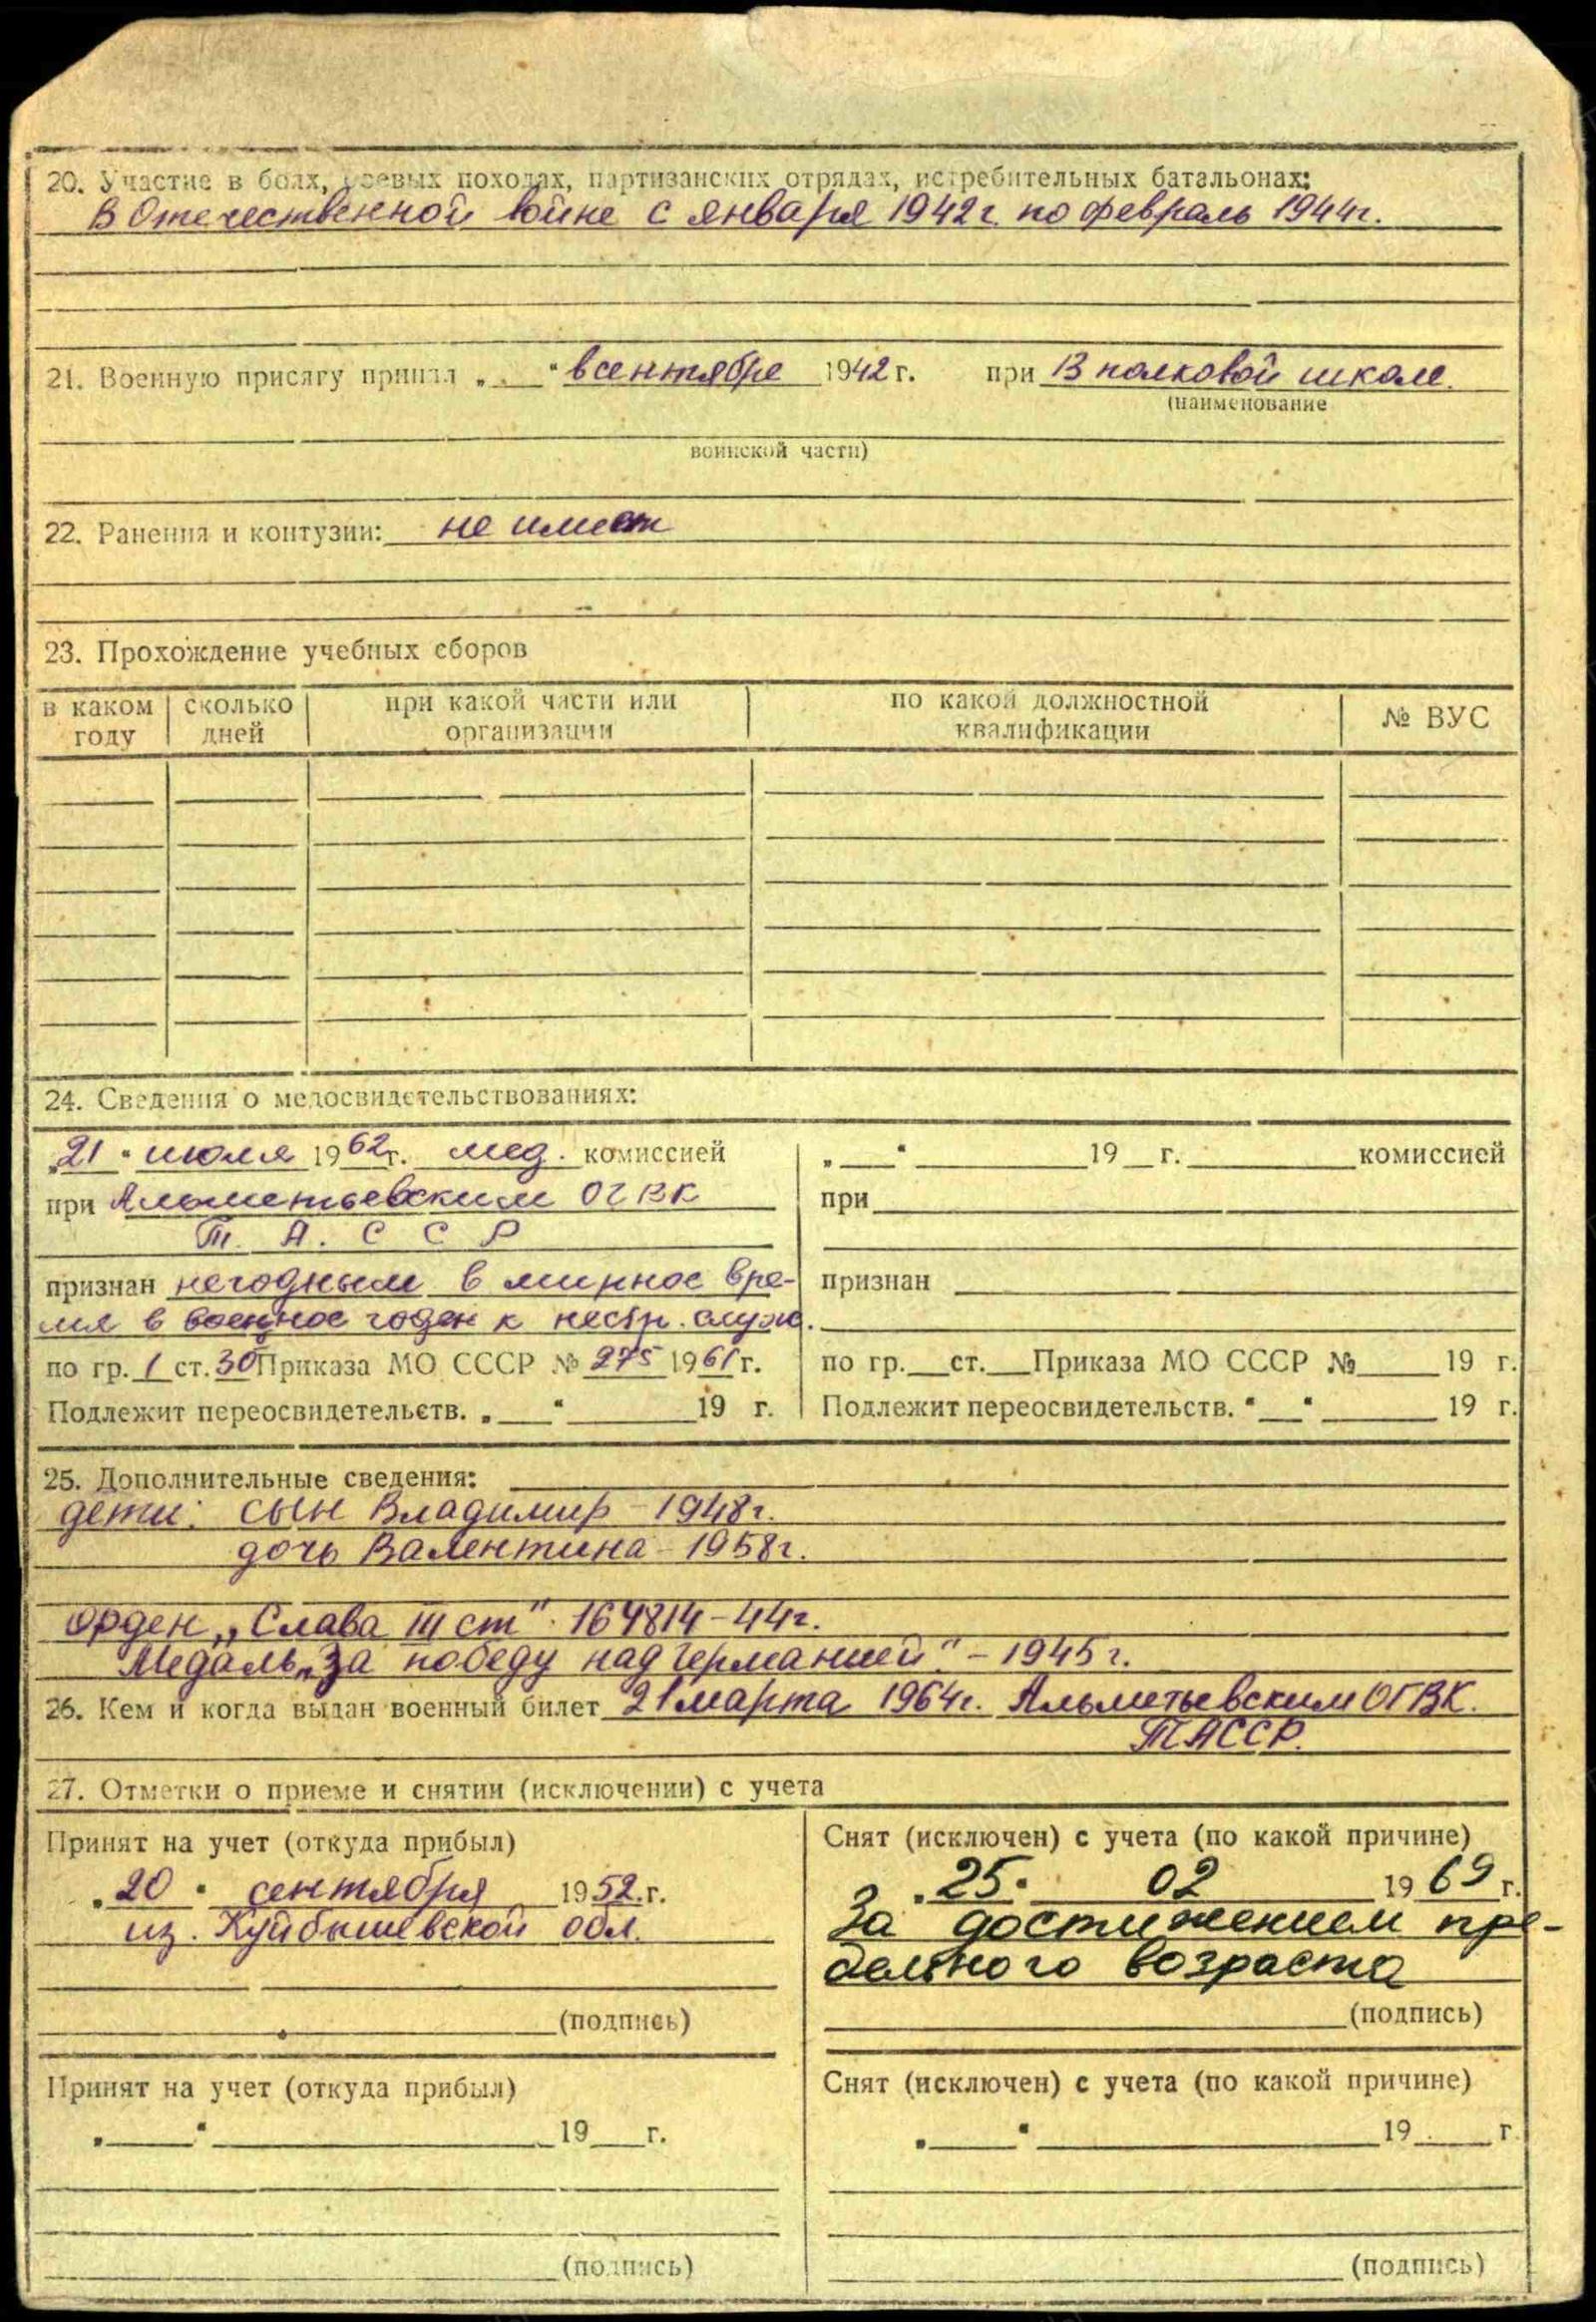 20. Участие в боях, боевых походах, партизанских отрядах, истребительных батальонах:
В Отечественной войне с января 1942г по февраль 1944г.
21. Военную присягу принял „ “ в сентябре 1942 г. при В полковой школе.
(наименование
воинской части)
22. Ранения и контузии: не имеет
23. Прохождение учебных сборов
в каком году | сколько дней | при какой части или организации | по какой должностной квалификации | № ВУС
24. Сведения о медосвидетельствованиях:
„21“ июля 1962г. мед. комиссией
при Альметьевским ОГВК
Т. А. С С Р
признан негодным в мирное вре-
мя в военное годен к нестр. служ.
по гр. 1 ст. 30 Приказа МО СССР № 275 1961 г.
Подлежит переосвидетельств. „ “ 19 г.
„ “ 19 г. комиссией
при
признан
по гр. ст. Приказа МО СССР № 19 г.
Подлежит переосвидетельств. “ “ 19 г.
25. Дополнительные сведения:
дети: сын Владимир – 1948г.
дочь Валентина – 1958г.
Орден „Слава III ст“ 164814 – 44г.
Медаль „За победу над Германией“ – 1945г.
26. Кем и когда выдан военный билет 21 марта 1964г. Альметьевским ОГВК.
ТАССР.
27. Отметки о приеме и снятии (исключении) с учета
Принят на учет (откуда прибыл)
„20“ сентября 1952 г.
из. Куйбышевской обл.
(подпись)
Снят (исключен) с учета (по какой причине)
„25“ 02 1969 г.
За достижением пре-
дельного возраста
(подпись)
Принят на учет (откуда прибыл)
„ “ 19 г.
(подпись)
Снят (исключен) с учета (по какой причине)
„ “ 19 г.
(подпись)